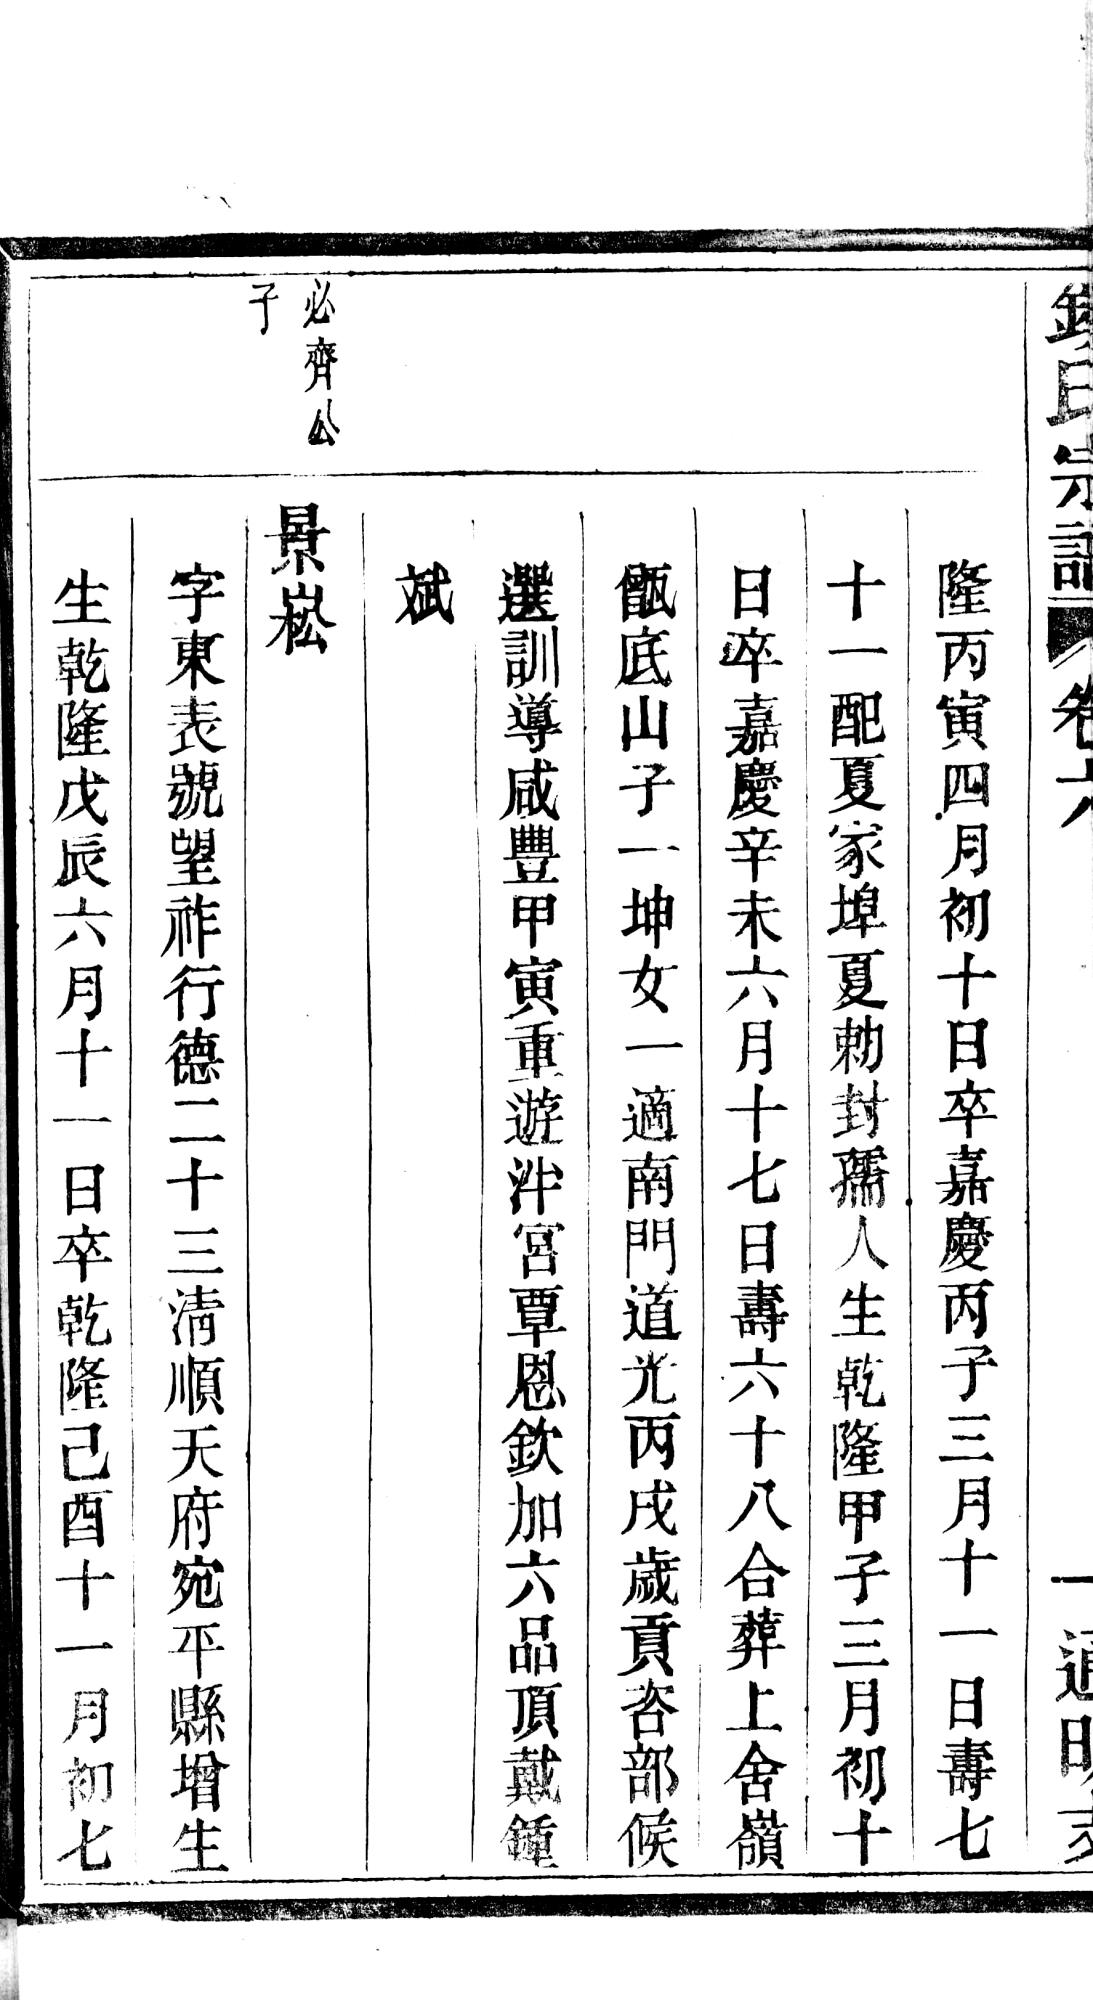 錢氏宗譜 卷六 一 通明支
隆丙寅四月初十日卒嘉慶丙子三月十一日壽七
十一配夏家埠夏勅封孺人生乾隆甲子三月初十
日卒嘉慶辛未六月十七日壽六十八合葬上舍嶺
甑底山子一坤女一適南門道光丙戌歲貢咨部候
選訓導咸豐甲寅重遊泮宮覃恩欽加六品頂戴鍾
斌
必齊公
子
景崧
字東表號望祚行德二十三清順天府宛平縣增生
生乾隆戊辰六月十一日卒乾隆己酉十一月初七